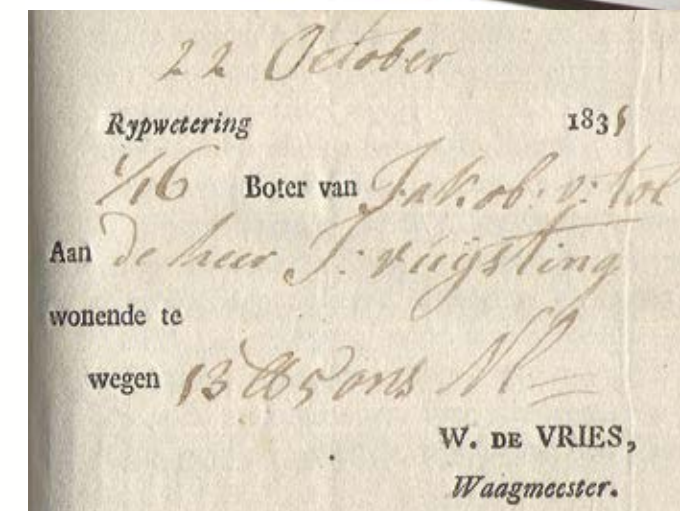 22 October
Rypwetering 1835
1/16 Boter van Jakob: v: tol
Aan de heer J: vuijsting
wonende te
wegen 13 ℔ 5 ons Nl
W. DE VRIES,
Waagmeester.